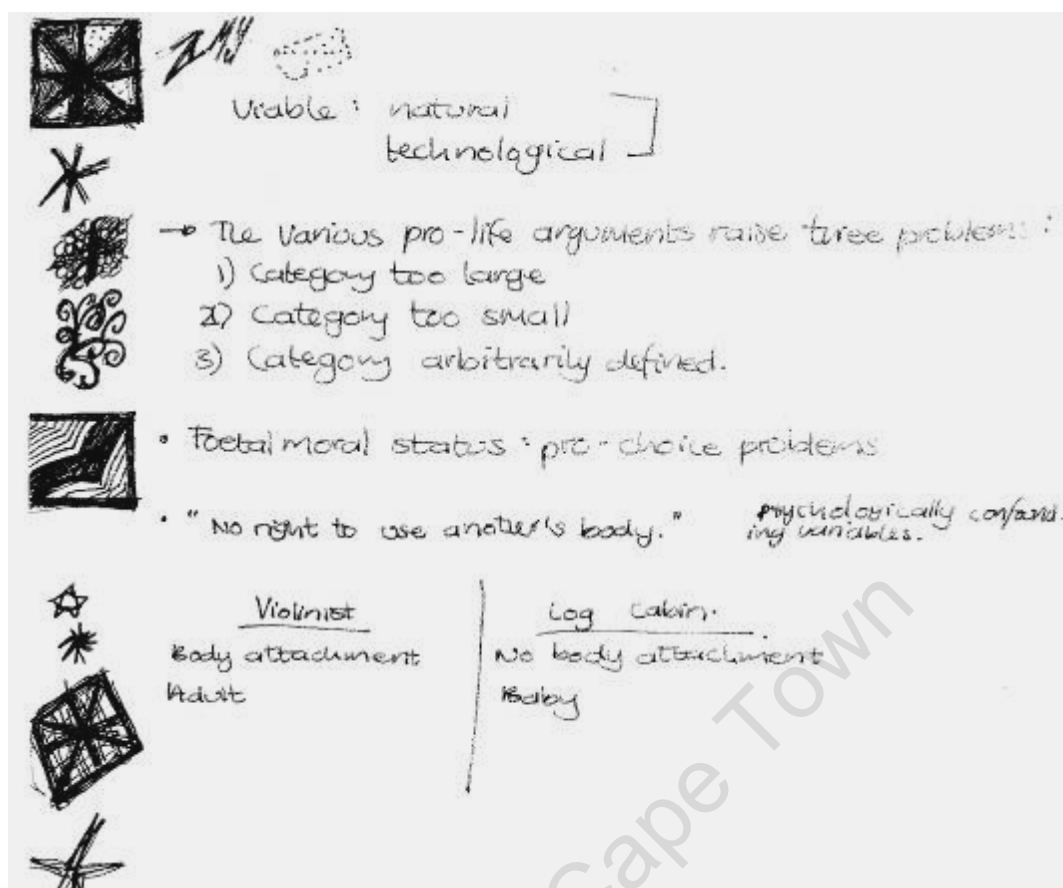 Viable : natural
technological
→ The various pro-life arguments raise three problems :
1) Category too large
2) Category too small
3) Category arbitrarily defined.
• Foetal moral status : pro-choice problems
• "No right to use another's body." psychologically confound-
ing variables.
Violinist Log Cabin.
Body attachment No body attachment
Adult Baby
Cape Town